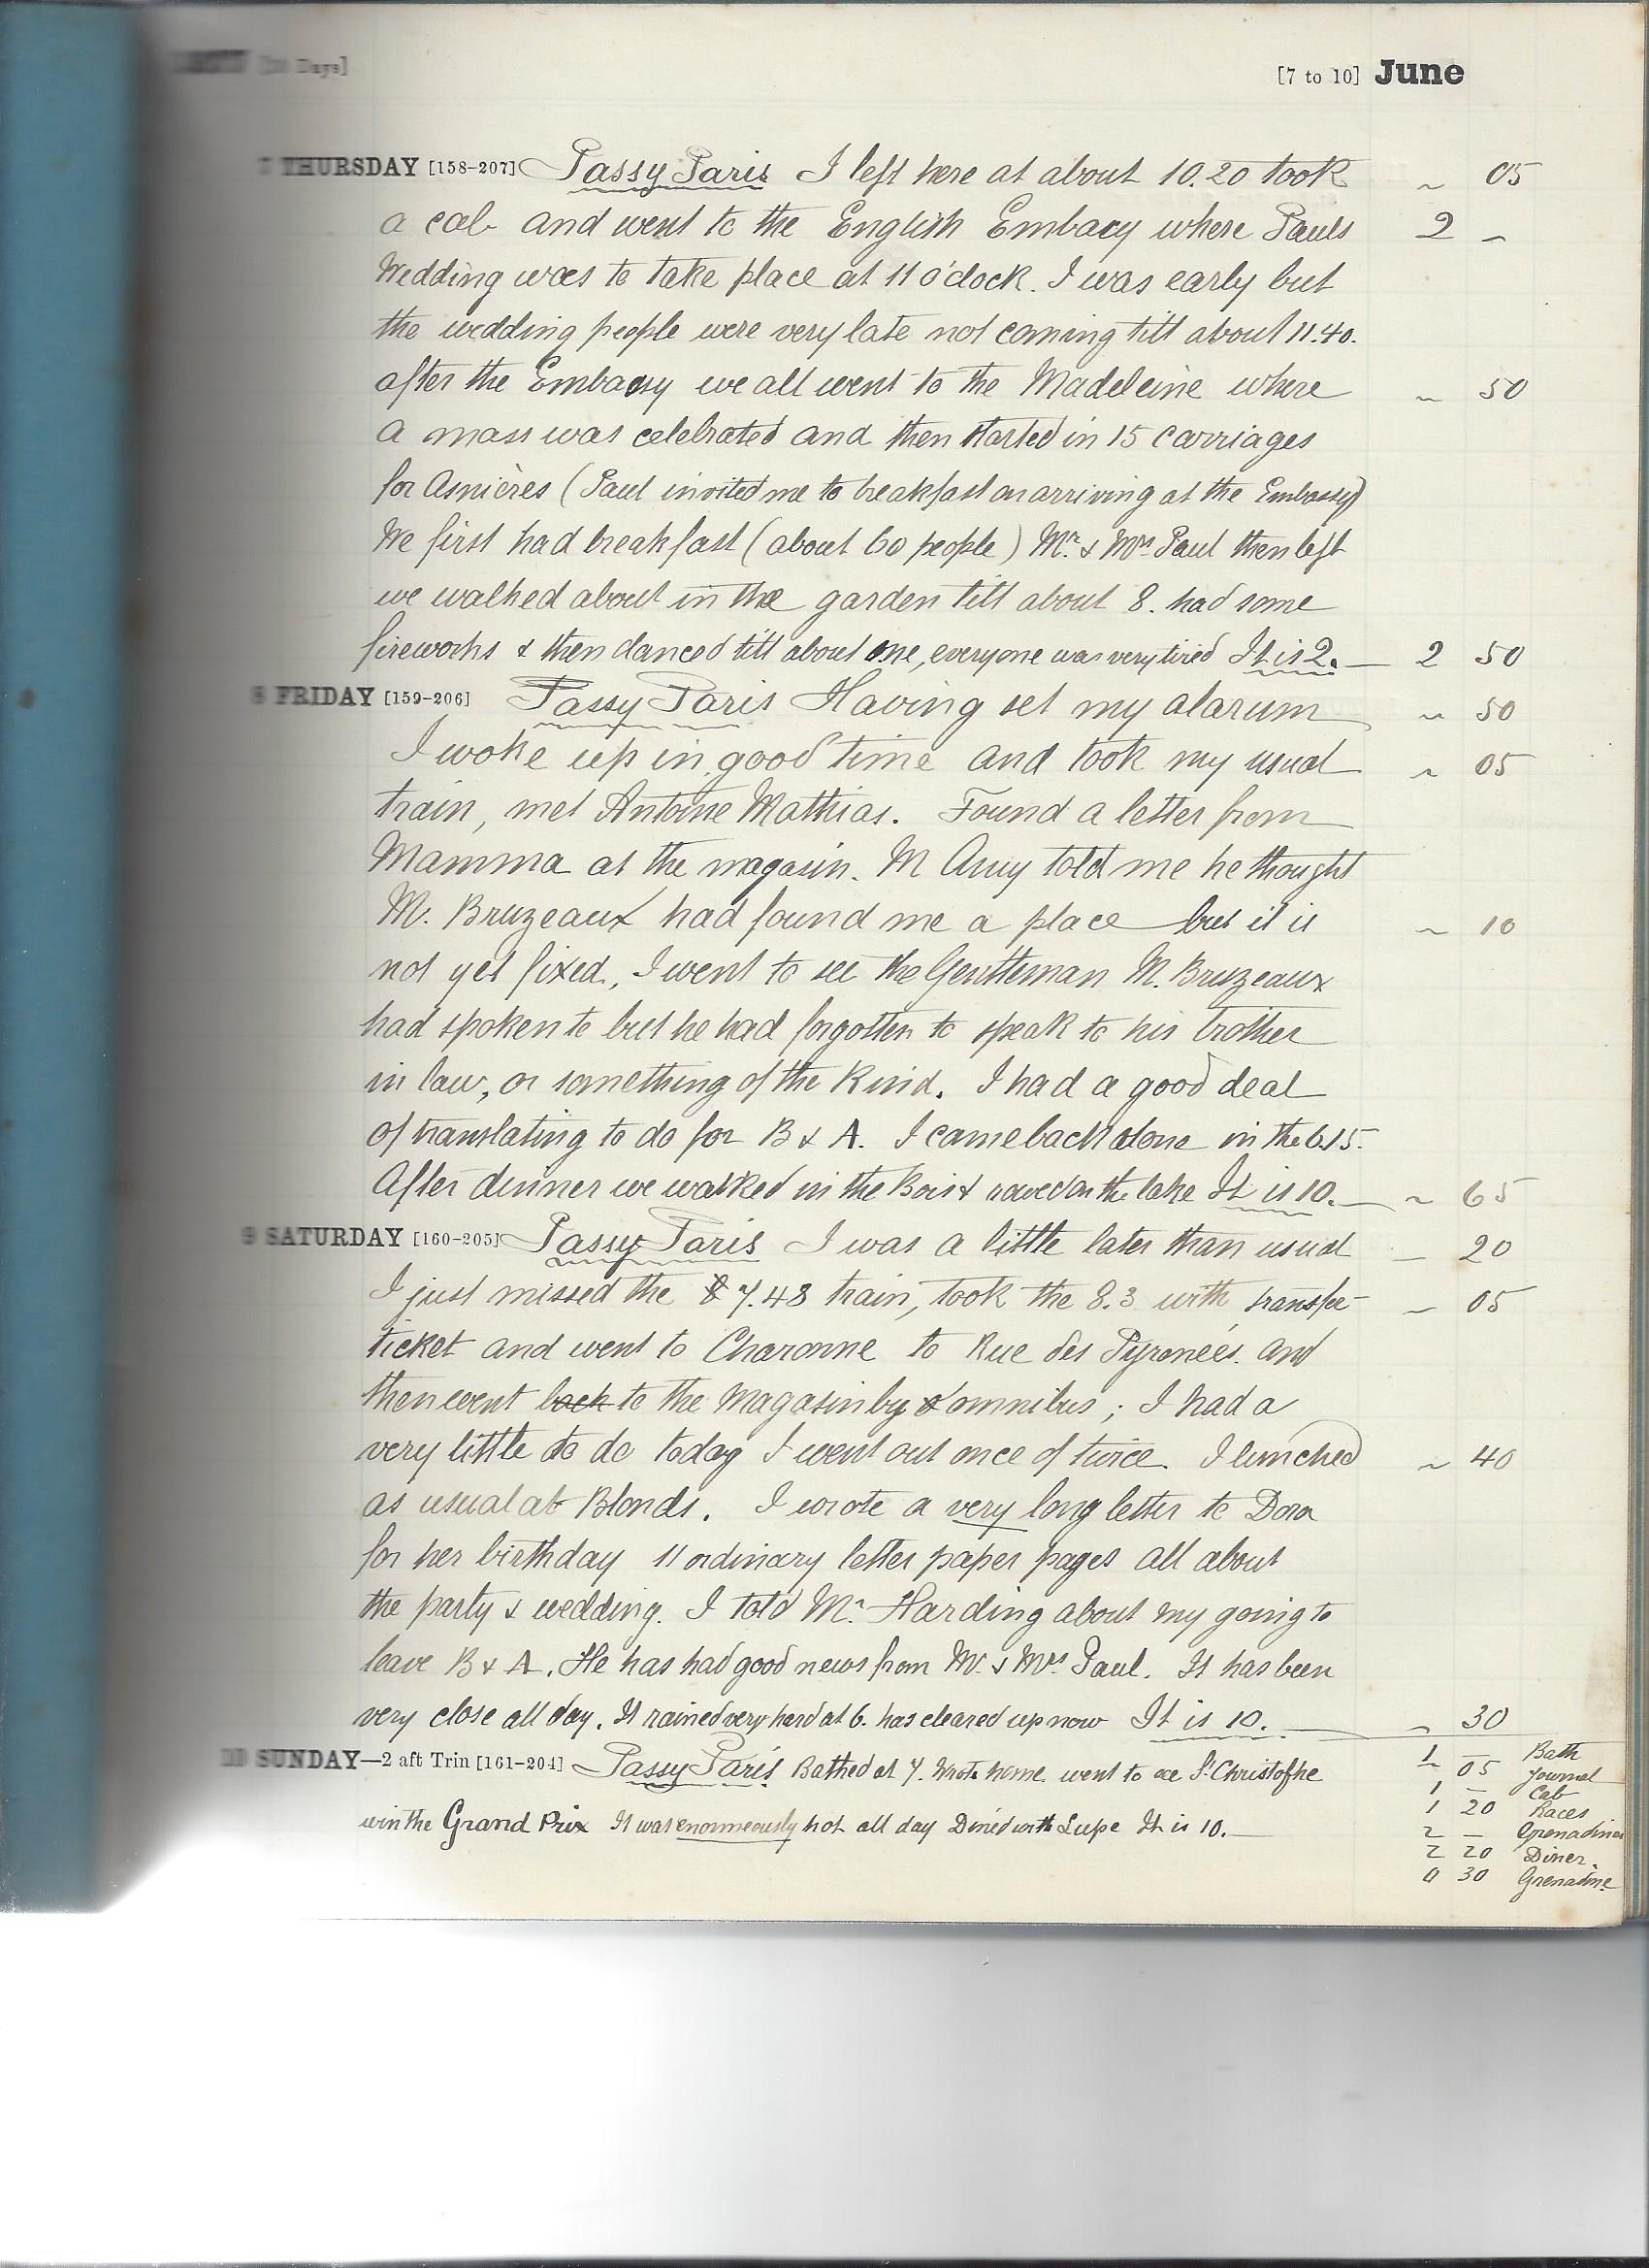 [7 to 10] June
THURSDAY [158-207] Passy Paris I left here at about 10.20 took ~ 05
a cab and went to the English Embacy where Pauls 2 -
Wedding was to take place at 11 o'clock. I was early but
the wedding people were very late not coming till about 11.40.
after the Embassy we all went to the Madeleine where ~ 50
a mass was celebrated and then started in 15 carriages
for Asnières (Paul invited me to breakfast on arriving at the Embassy)
We first had breakfast (about 60 people) Mr. & Mrs Paul then left
we walked about in the garden till about 8. had some
fireworks & then danced till about one, everyone was very tired It is 2. 2 50
8 FRIDAY [159-206] Passy Paris Having set my alarum ~ 50
I woke up in good time and took my usual ~ 05
train, met Antoine Mathias. Found a letter from
Mamma at the magasin. M Amy told me he thought
M. Bruzeaux had found me a place but it is ~ 10
not yet fixed, I went to see the Gentleman M. Bruzeaux
had spoken to but he had forgotten to speak to his brother
in law, or something of the Kind. I had a good deal
of translating to do for B & A. I came back alone in the 6.15.
After dinner we walked in the Bois & rowed on the lake It is 10. ~ 65
9 SATURDAY [160-205] Passy Paris I was a little later than usual - 20
I just missed the 8 7.48 train, took the 8.3 with transfer ~ 05
ticket and went to Charonne to Rue des Pyrenées. and
then went back to the Magasin by omnibus; I had a
very little to do today I went out once of twice. I lunched ~ 40
as usual at Blonds. I wrote a very long letter to Dora
for her birthday 11 ordinary letter paper pages all about
the party & wedding. I told Mr. Harding about my going to
leave B & A. He has had good news from Mr. & Mrs Paul. It has been
very close all day. It rained very hard at 6. has cleared up now It is 10. ~ 30
10 SUNDAY—2 aft Trin [161-204] Passy Paris Bathed at 7. Wrote home. went to see St Christophe
win the Grand Prix It was enormeously hot all day Dined with Lupe It is 10.
1 - Bath
- 05 Journal
1 - Cab
1 20 Races
2 - Grenadines
2 20 Diner.
0 30 Grenadine